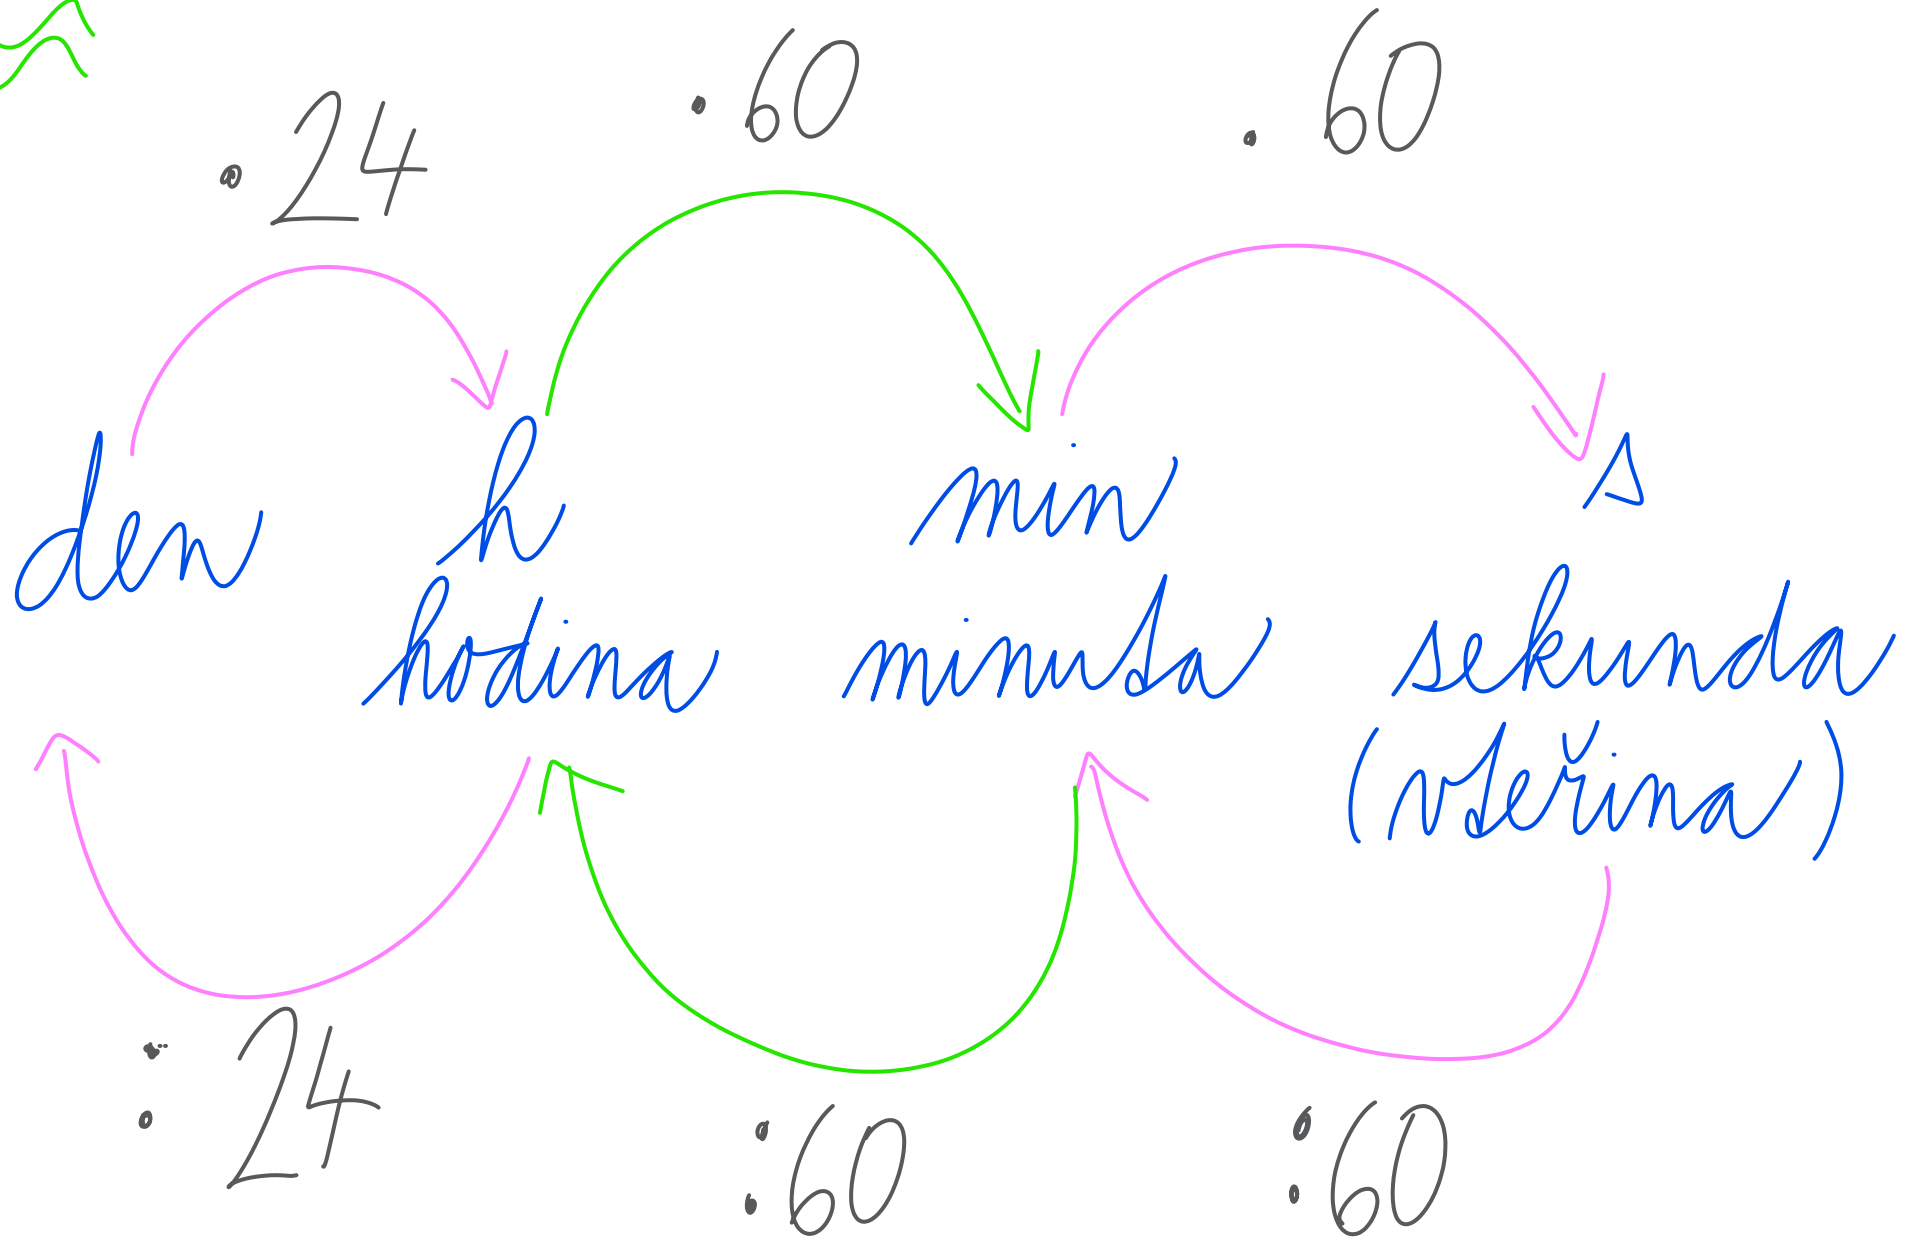 · 24 · 60 · 60
den h min s
hodina minuta sekunda
(vteřina)
: 24 : 60 : 60